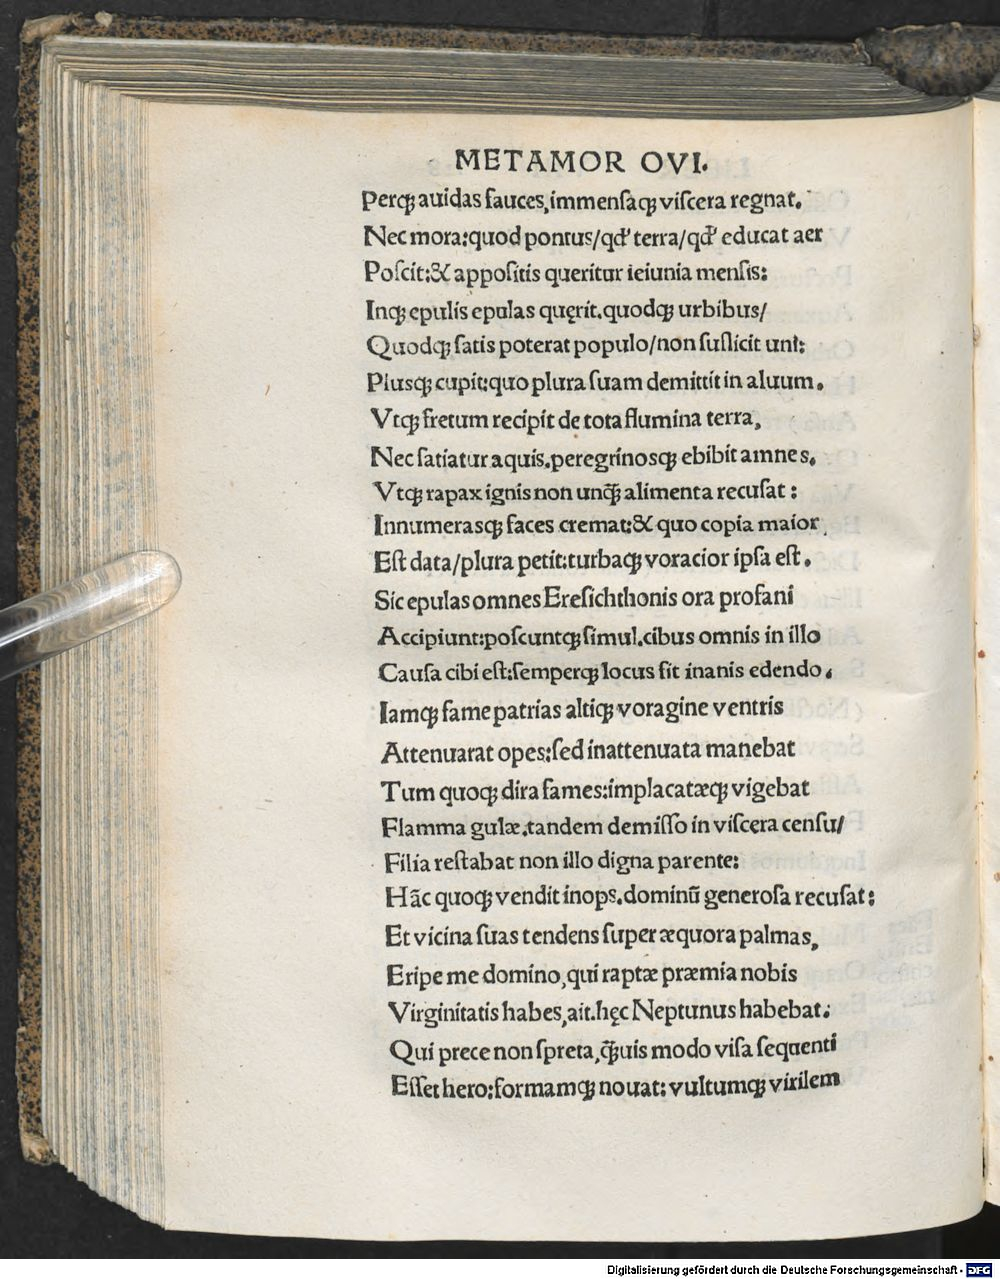 METAMOR OVI.
Perqꝫ auidas fauces,immensaqꝫ viſcera regnat.
Nec mora:quod pontus/qd' terra/qd' educat aer
Poſcit:& appoſitis queritur ieiunia menſis:
Inqꝫ epulis epulas quęrit.quodqꝫ urbibus/
Quodqꝫ ſatis poterat populo/non ſuſſicit uni:
Plusqꝫ cupit:quo plura ſuam demittit in aluum.
Vtqꝫ fretum recipit de tota flumina terra,
Nec ſatiatur aquis.peregrinosqꝫ ebibit amnes.
Vtqꝫ rapax ignis non unq̃ꝫ alimenta recuſat:
Innumerasqꝫ faces cremat:& quo copia maior
Eſt data/plura petit:turbaqꝫ voracior ipſa eſt.
Sic epulas omnes Ereſichthonis ora profani
Accipiunt:poſcuntqꝫ ſimul.cibus omnis in illo
Cauſa cibi eſt:ſemperqꝫ locus fit inanis edendo.
Iamqꝫ fame patrias altiqꝫ voragine ventris
Attenuarat opes:ſed inattenuata manebat
Tum quoqꝫ dira fames:implacatæqꝫ vigebat
Flamma gulæ.tandem demiſſo in viſcera cenſu/
Filia reſtabat non illo digna parente:
Hãc quoqꝫ vendit inops.dominũ generoſa recuſat:
Et vicina ſuas tendens ſuper æquora palmas,
Eripe me domino,qui raptæ præmia nobis
Virginitatis habes,ait.hęc Neptunus habebat:
Qui prece non ſpreta,q̃ꝫuis modo viſa ſequenti
Eſſet hero:formamqꝫ nouat:vultumqꝫ virilem
Digitalisierung gefördert durch die Deutsche Forschungsgemeinschaft - DFG